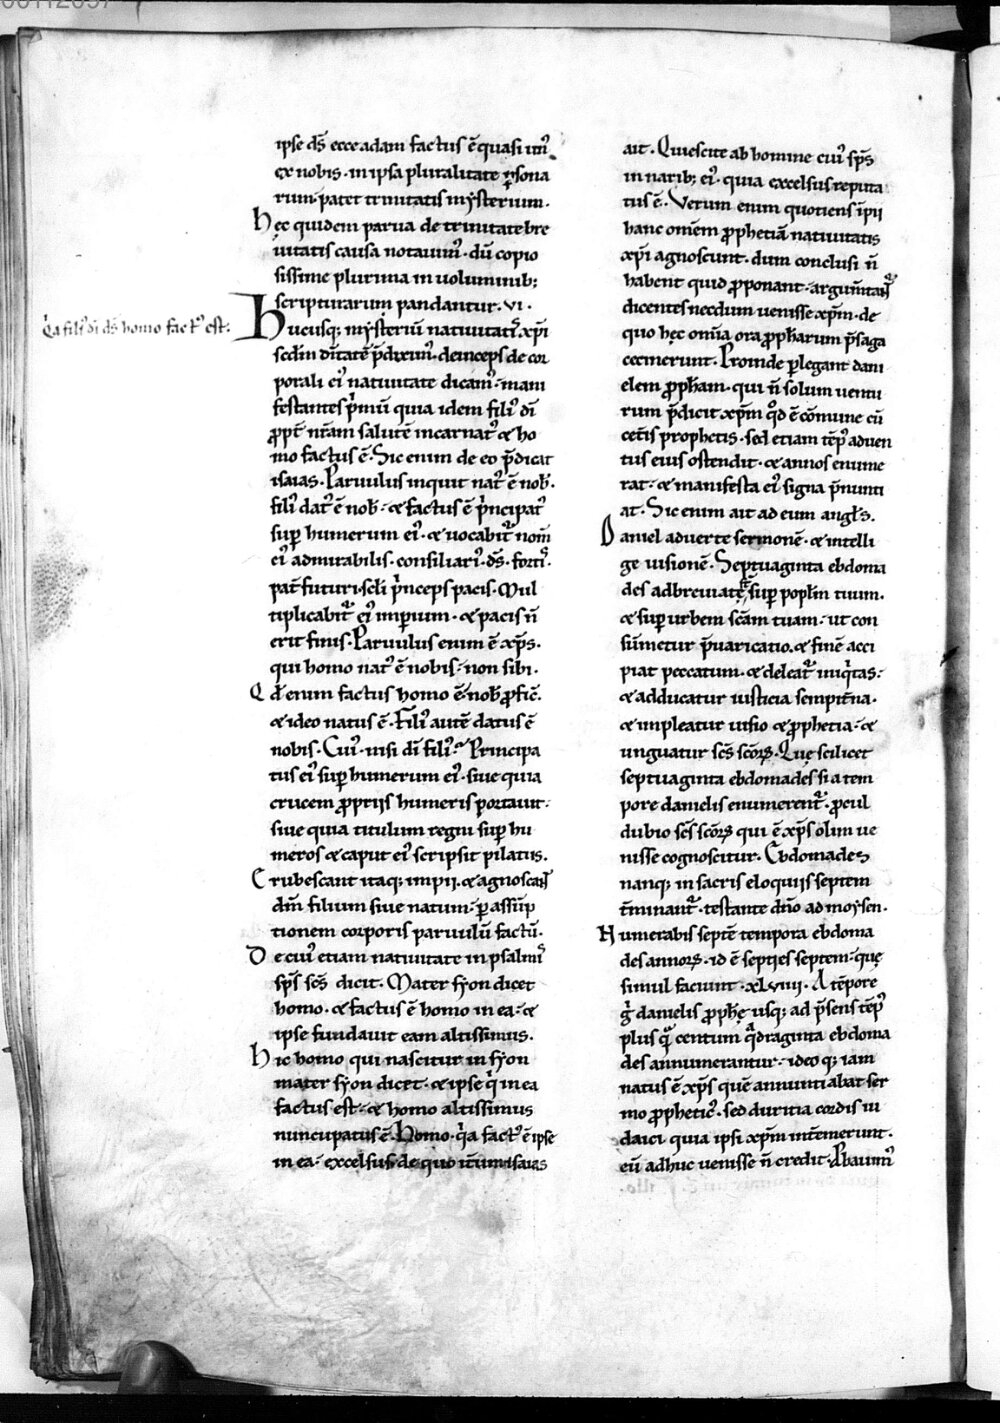 ipse ds̄ ecce adam factus ē quasi unꝰ
ex nobis. in ipsa pluralitate ꝑsona
rum patet trinitatis mẏsterium.
hec quidem parua de trinitate bre
uitatis causa notauimꝰ. dū copio
sissime plurima in uoluminib;
scripturarum pandantur. VI.
Q̇a filiꝰ di ds̄ homo factꝰ est.
Hucusq; mẏsteriū natiuitatis xp̄i
scdm diuitatē p̄diximꝰ. deinceps de cor
porali eiꝰ natiuitate dicamꝰ. mani
festantes p̄mū quia idem filiꝰ dī
ꝓpt̄ nr̄am salutē incarnatꝰ & ho
mo factus ē. Sic enim de eo p̄dicat
isaias. Paruulus inquit natꝰ ē nob̄.
filiꝰ datꝰ ē nob̄. & factus ē p̄ncipatꝰ
suꝑ humerum eiꝰ. & uocabit᷑ nom̄
eiꝰ admirabilis. consiliariꝰ. ds̄. fortis.
pat̄ futuri scli p̄nceps pacis. Mul
tiplicabit᷑ eiꝰ imperium. & pacis n̄
erit finis. Paruulus enim ē xp̄s.
qui homo natꝰ ē nobis. non sibi.
Qd̄ enim factus homo ē. nob̄ ꝓfic̄.
& ideo natus ē. Filiꝰ autē datus ē
nobis. Cuiꝰ nisi di filiꝰ? Principa
tus eiꝰ suꝑ humerum eiꝰ. siue quia
crucem ꝓpriis humeris portauit.
siue quia titulum regni suꝑ hu
meros & caput eiꝰ scripsit pilatus.
Erubescant itaq; impii. & agnoscant
dm̄ filium siue natum. ꝑ assūp
tionem corporis paruulū factū.
De cuiꝰ etiam natiuitate in psalmis
sp̄s sc̄s dicit. Mater sẏon dicet
homo. & factus ē homo in ea. &
ipse fundauit eam altissimus.
Hic homo qui nascitur in sẏon
mater sẏon dicet. & ipse q̇ in ea
factus est. & homo altissimus
nuncupatus ē. Homo. q̇a factꝰ ē ipse
in ea. excelsus. de quo itum isaias
ait. Quiescite ab homine cuiꝰ sp̄s
in narib; eiꝰ. quia excelsus reputa
tus ē. Verum enim quotiens īpii
hanc om̄em ꝓphetiā natiuitatis
xp̄i agnoscunt. dum conclusi n̄
habent quid ꝓponant. argum̄tant᷑
dicentes necdum uenisse xp̄m. de
quo hęc om̄ia ora ꝓph̄arum p̄saga
cecinerunt. Proinde ꝑlegant dani
elem ꝓph̄am. qui n̄ solum uentu
rum p̄dicit xp̄m qd̄ ē cōmune cū
cet̄is prophetis. sed etiam tēpꝰ aduen
tus eius ostendit. & annos enume
rat. & manifesta eiꝰ signa p̄nunti
at. Sic enim ait ad eum angl̄s.
Daniel aduerte sermonē. & intelli
ge uisionē. Septuaginta ebdoma
des adbreuiatę st̄ suꝑ popl̄m tuum.
& suꝑ urbem sc̄am tuam. ut con
sūmetur p̄uaricatio. & finē acci
piat peccatum. & deleat᷑ iniq̇tas.
& adducatur iusticia sempit̄na.
& impleatur uisio & ꝓphetia. &
unguatur sc̄s sc̄oꝝ. Quę scilicet
septuaginta ebdomades si a tem
pore danielis enumerent᷑. ꝓcul
dubio sc̄s sc̄oꝝ qui ē xp̄s olim ue
nisse cognoscitur. Ebdomades
nanq; in sacris eloquiis septem
t̄minant᷑. testante dn̄o ad moẏsen.
Numerabis septē tempora ebdoma
des annoꝝ. id ē septies septem. quę
simul faciunt. XLVIIII. A tēpore
g̊ danielis ꝓph̄ę usq; ad p̄sens tēpꝰ
plus q̄ centum q̄draginta ebdoma
des annumerantur. ideo q; iam
natus ē xp̄s quē annuntiabat ser
mo ꝓpheticꝰ. sed duritia cordis iu
daici quia ipsi xp̄m int̄emerunt.
eū adhuc uenisse n̄ credit. Pbauimꝰ